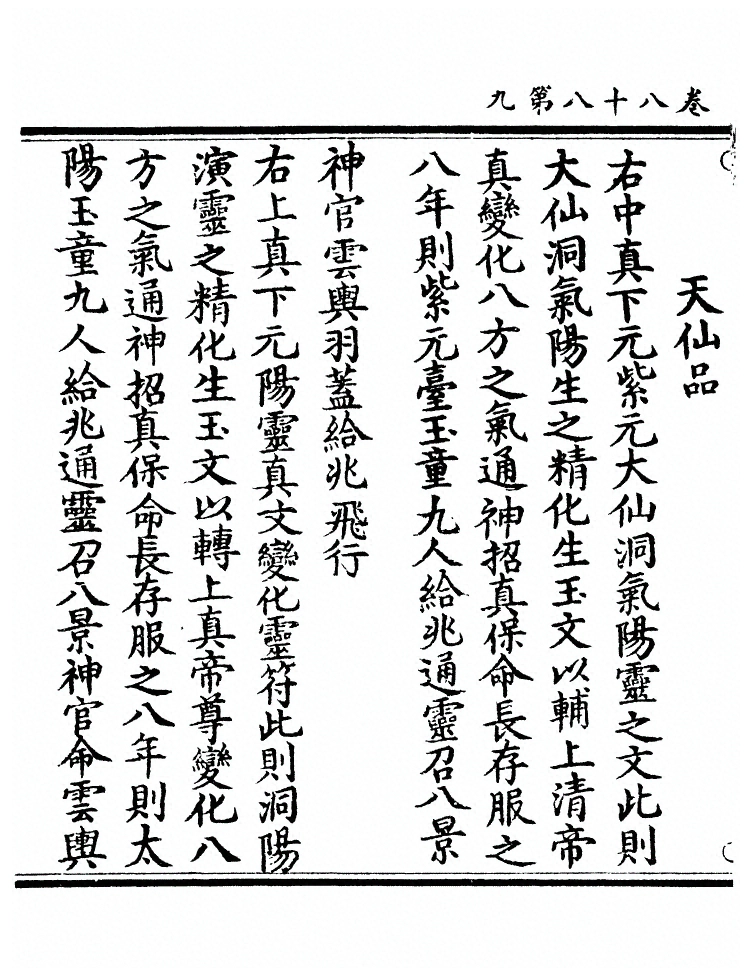 卷八十八第九
天仙品
右中真下元紫元大仙洞氣陽靈之文此則
大仙洞氣陽生之精化生玉文以輔上清帝
真變化八方之氣通神招真保命長存服之
八年則紫元臺玉童九人給兆通靈召八景
神官雲輿羽蓋給兆飛行
右上真下元陽靈真文變化靈符此則洞陽
演靈之精化生玉文以轉上真帝尊變化八
方之氣通神招真保命長存服之八年則太
陽玉童九人給兆通靈召八景神官命雲輿